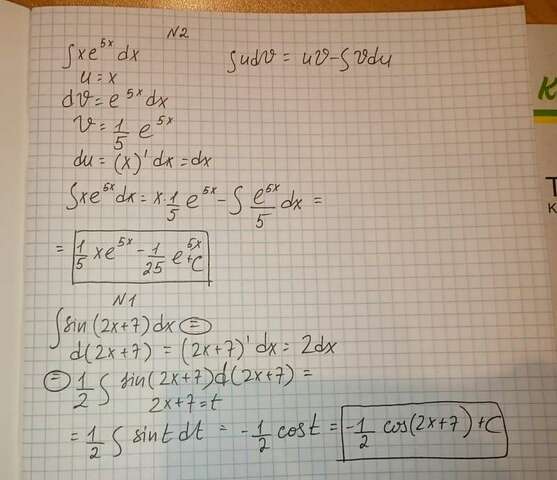 N2
∫xe^{5x}dx   ∫udv = uv-∫vdu
u=x
dv=e^{5x}dx
v=\frac{1}{5} e^{5x}
du=(x)'dx=dx
∫xe^{5x}dx=x·\frac{1}{5} e^{5x}-∫\frac{e^{5x}}{5} dx =
= \frac{1}{5} xe^{5x}-\frac{1}{25} e^{5x}+C
N1
∫sin(2x+7)dx =
d(2x+7) = (2x+7)'dx= 2dx
= \frac{1}{2} ∫ sin(2x+7)d(2x+7) =
2x+7=t
=\frac{1}{2} ∫ sintdt = -\frac{1}{2} cost = -\frac{1}{2} cos(2x+7)+C